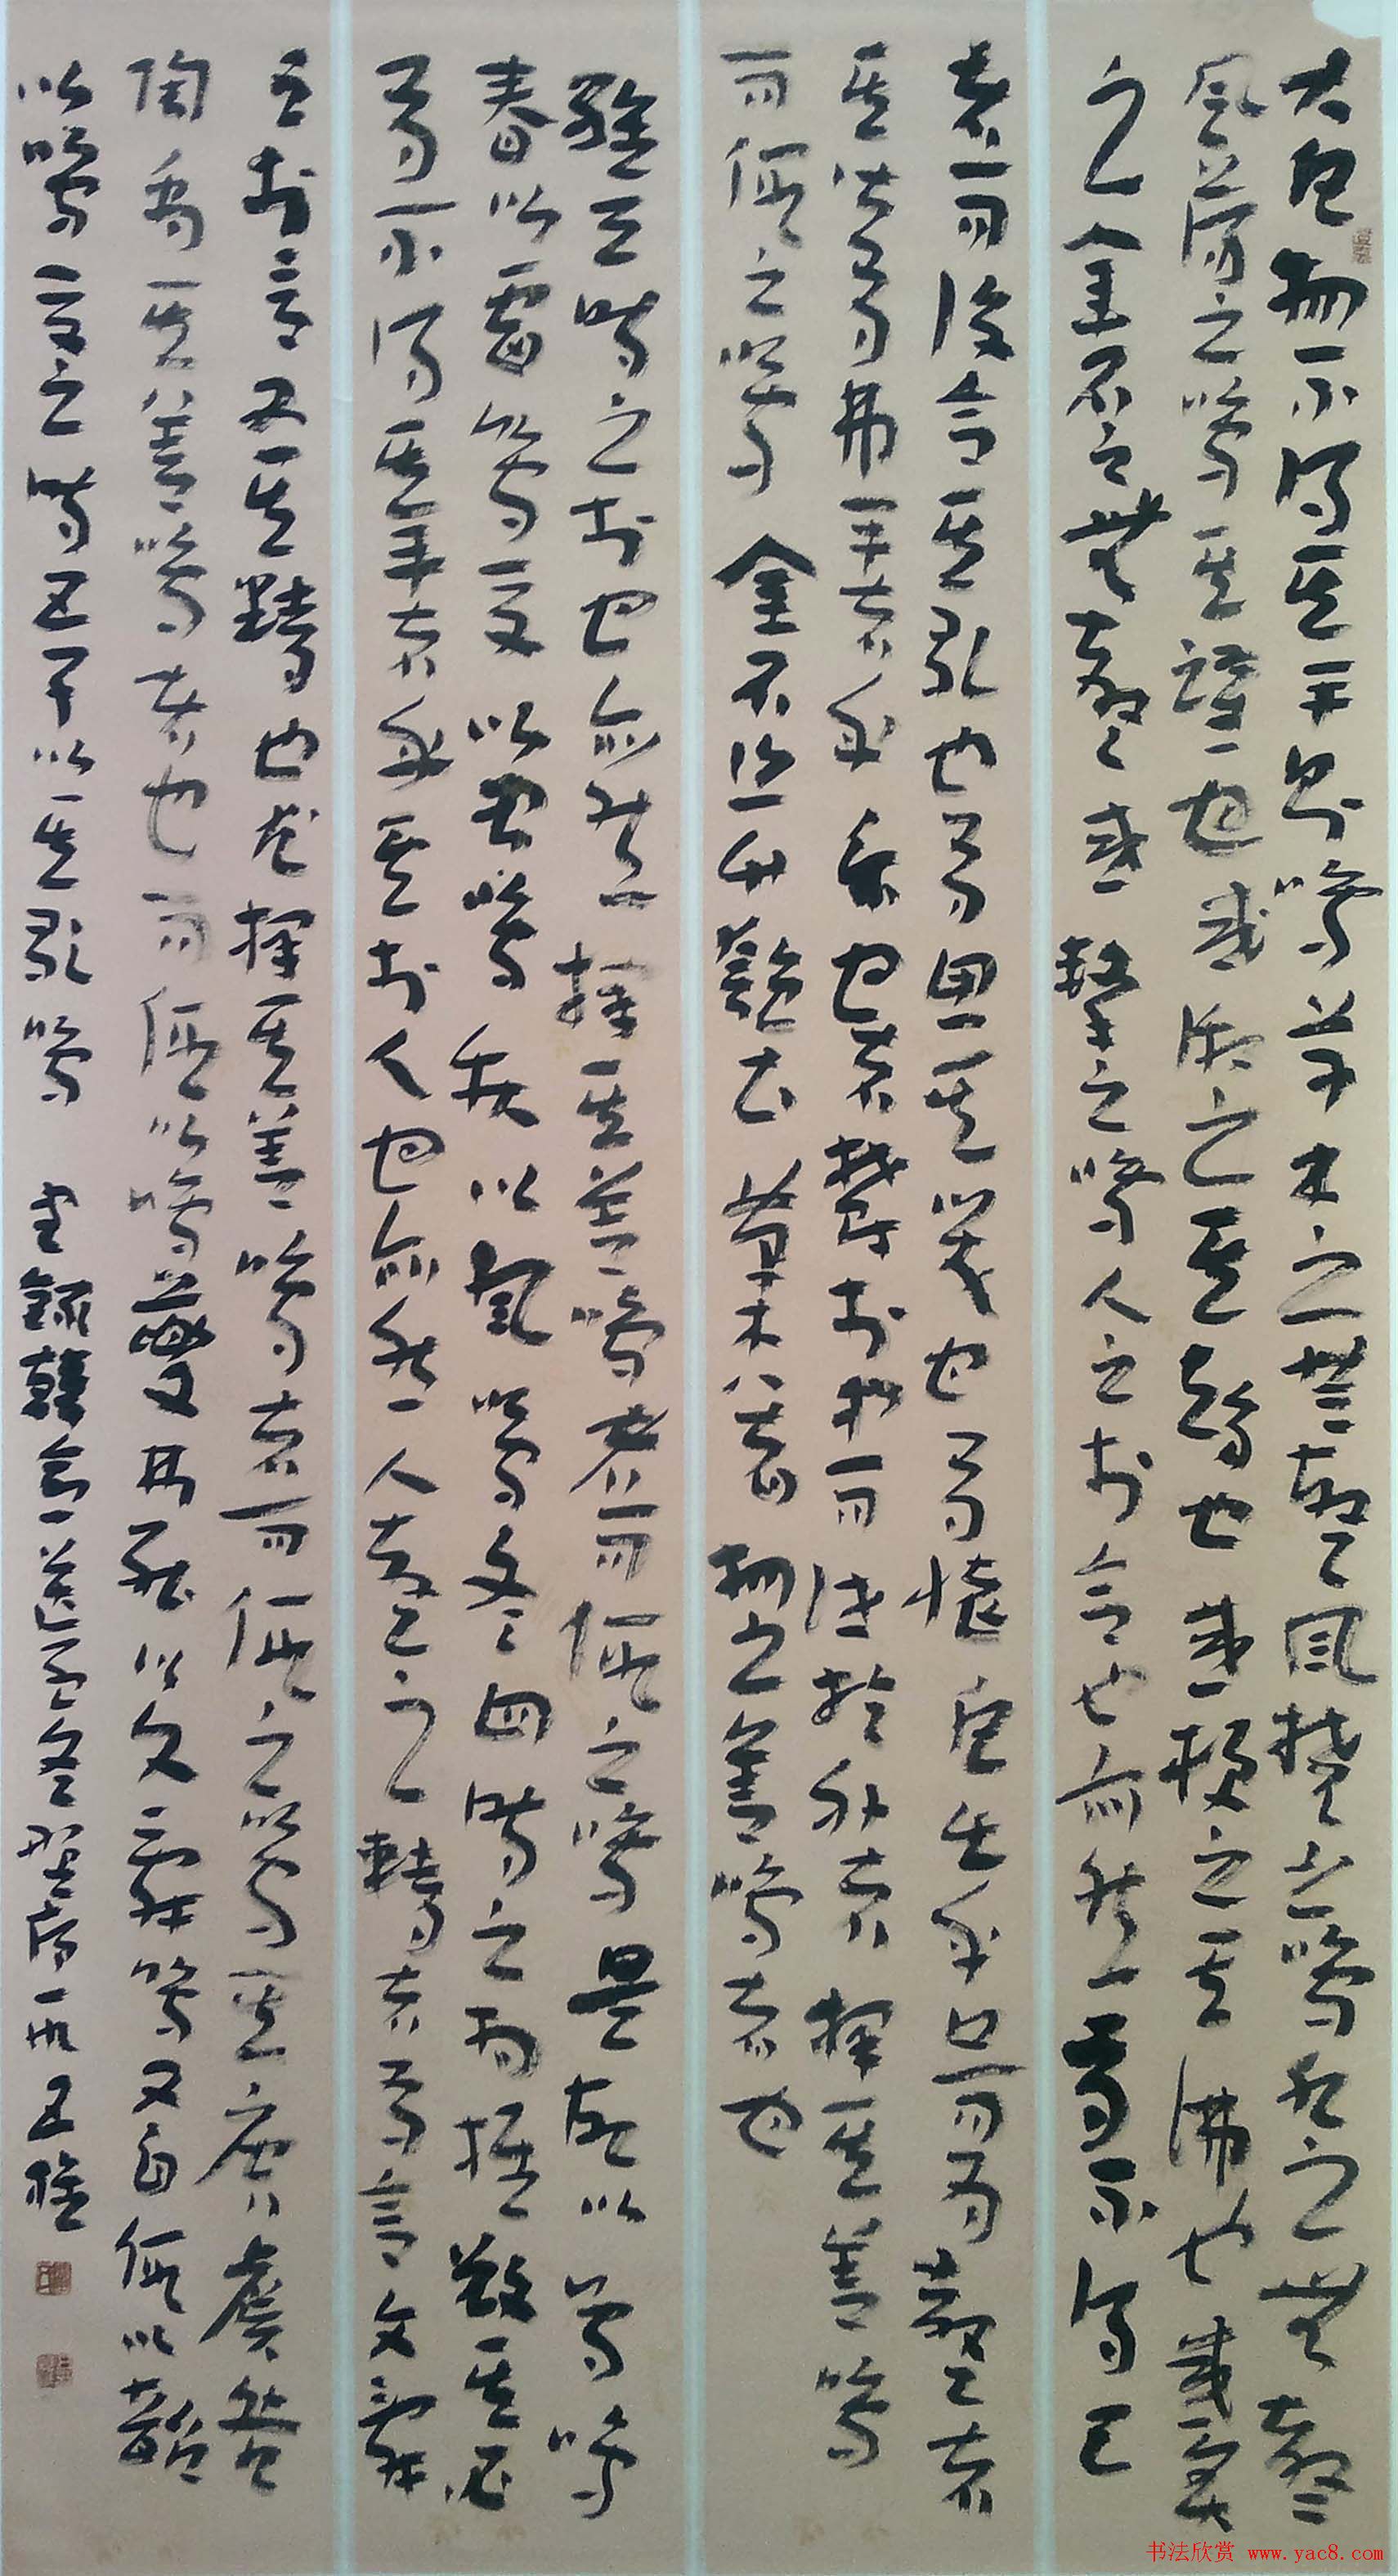 大凡物不得其平則鳴草木之無聲風撓之鳴水之無聲
風蕩之鳴其躍也或激之其趨也或梗之其沸也或炙
之金石之無聲或擊之鳴人之於言也亦然有不得已
者而後言其歌也有思其哭也有懷凡出乎口而為聲者
其皆有弗平者乎樂也者鬱於中而泄於外者擇其善鳴
而假之鳴金石絲竹匏土革木八者物之善鳴者也
維天時之於也亦然擇其善鳴者而假之鳴是故以鳥鳴
春以雷鳴夏以蟲鳴秋以風鳴冬四時之相推敚其必
有不得其平者乎其於人也亦然人聲之精者為言文辭
之於言又其精也尤擇其善鳴者而假之鳴其唐虞咎
陶禹其善鳴者也而假以鳴夔弗能以文辭鳴又自假以韶
以鳴夏之時五子以其歌鳴 錄韓愈送孟冬野序一段
书法欣赏 www.yac8.com